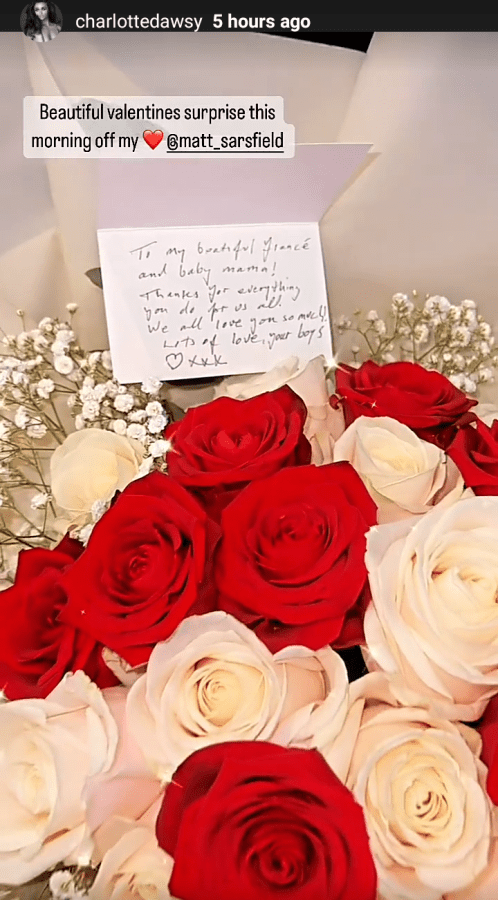 charlottedawsy 5 hours ago
Beautiful valentines surprise this
morning off my ❤️ @matt_sarsfield
To my beatiful fiancé
and baby mama!
Thanks for everything
you do for us all
We all love you so much!
Lots of love, your boys
♡ xxx